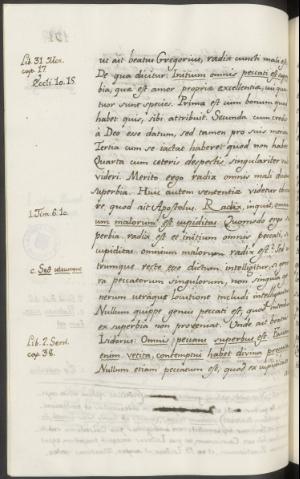 Lib. 31. Mor.
cap. 17.
Eccli. 10. 15.
1. Tim. 6. 10.
Lib. 2. Sent.
cap. 38.
ut ait beatus Gregorius, radix cuncti mali est
De qua dicitur: Initium omnis peccati est
bia, quæ est amor propriæ excellentiæ,
tuor sunt species. Prima est cum bonum quod
habet quis, sibi attribuit. Secunda cum credit
à Deo esse datum, sed tamen pro suis
Tertia cum se iactat habere quod non habet
Quarta cum ceteris despectis singulariter
videri. Merito ergo radix omnis mali
superbia. Huic autem sententiæ videtur
re quod ait Apostolus. Radix, inquit,
um malorum est cupiditas. Quomodo ergo
perbia radix est et initium omnis peccati, si
cupiditas omnium malorum radix est? Sed
trumque recte esse dictum intelligitur, si
ra peccatorum singulorum, non singula
nerum utraque locutione includi
Nullum quippe genus peccati est, quod
ex superbia non proveniat. Unde ait beatus
Isidorus: Omnis peccans superbus est.
enim vetita, contemptui habet divina
Nullum etiam peccatum est, quod ex cupiditate